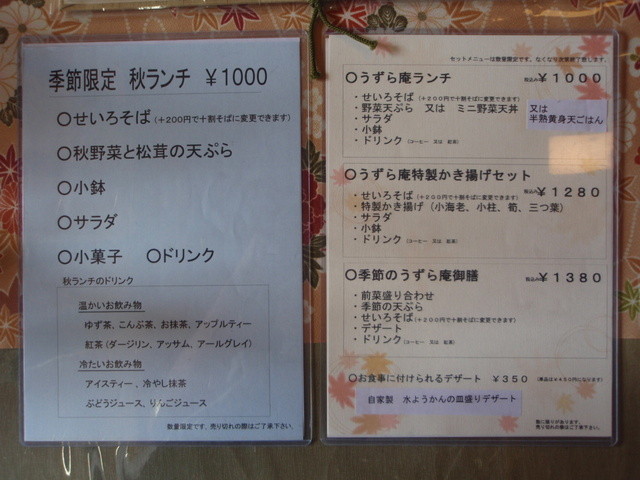 季節限定 秋ランチ ¥1000
○せいろそば（＋200円で十割そばに変更できます）
○秋野菜と松茸の天ぷら
○小鉢
○サラダ
○小菓子 ○ドリンク
秋ランチのドリンク
温かいお飲み物
ゆず茶、こんぶ茶、お抹茶、アップルティー
紅茶（ダージリン、アッサム、アールグレイ）
冷たいお飲み物
アイスティー、冷やし抹茶
ぶどうジュース、りんごジュース
数量限定です、売り切れの際はご了承下さい。
セットメニューは数量限定です。なくなり次第終了致します。
○うずら庵ランチ 税込み¥1000
・せいろそば（＋200円で十割そばに変更できます）
・野菜天ぷら 又は ミニ野菜天丼
・サラダ
・小鉢
・ドリンク（コーヒー 又は 紅茶）
又は
半熟黄身天ごはん
○うずら庵特製かき揚げセット
税込み¥1280
・せいろそば（＋200円で十割そばに変更できます）
・特製かき揚げ（小海老、小柱、筍、三つ葉）
・サラダ
・小鉢
・ドリンク（コーヒー 又は 紅茶）
○季節のうずら庵御膳 税込み¥1380
・前菜盛り合わせ
・季節の天ぷら
・せいろそば（＋200円で十割そばに変更できます）
・デザート
・ドリンク（コーヒー 又は 紅茶）
○お食事に付けられるデザート ¥350（単品は¥450円になります）
自家製 水ようかんの皿盛りデザート
数に限りがあります。
売り切れの際はご了承下さい。